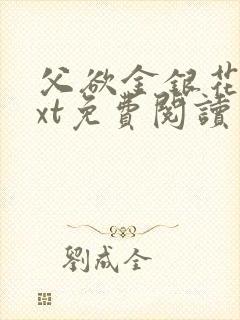 父欲金銀花
xt免費閱讀
劉成全